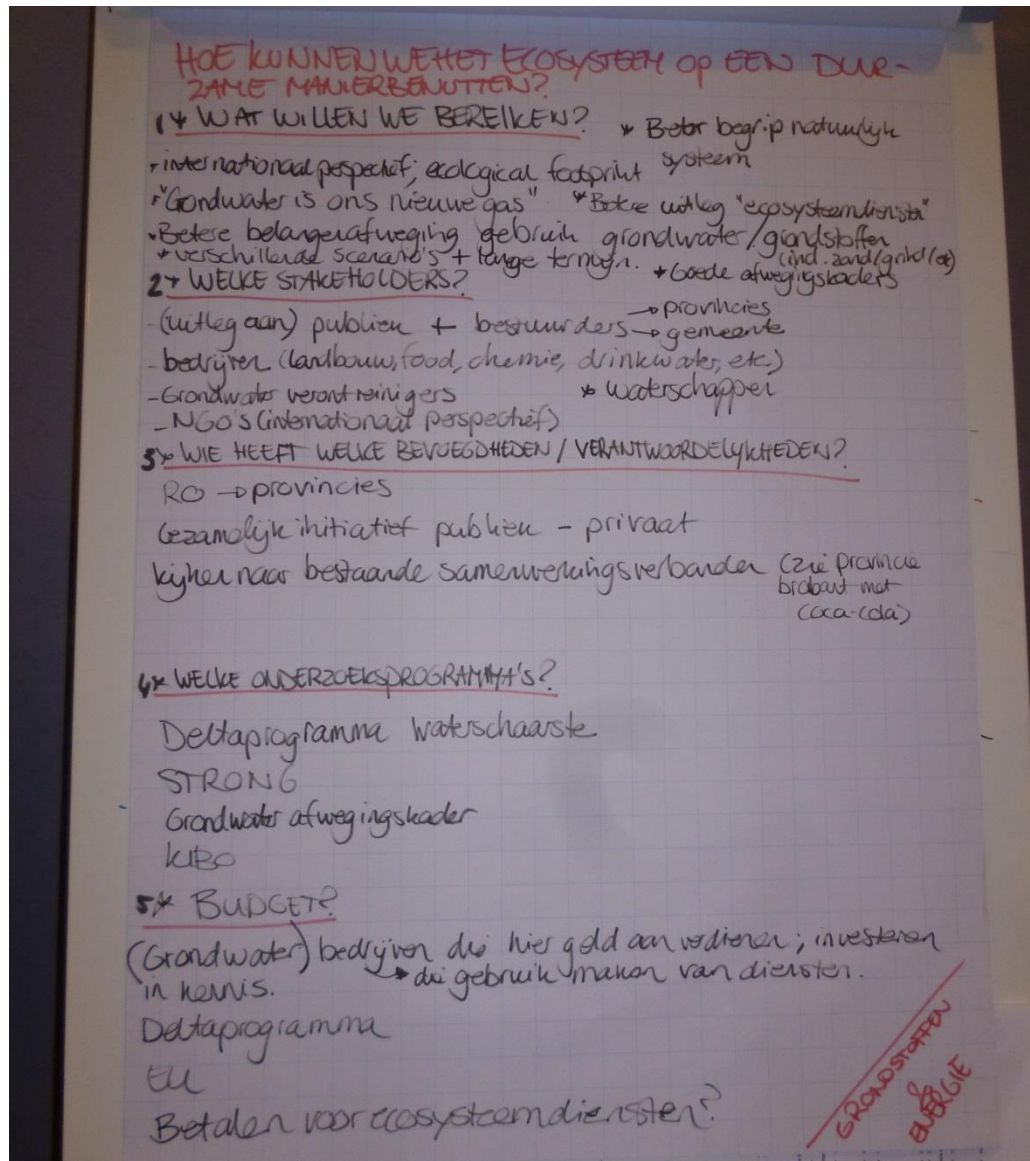 HOE KUNNEN WE HET ECOSYSTEEM OP EEN DUUR-
ZAME MANIER BENUTTEN?
1* WAT WILLEN WE BEREIKEN?
* Beter begrip natuurlijk
systeem
- internationaal perspectief; ecological footprint
- "Grondwater is ons nieuwe gas"
* Betere uitleg "ecosysteemdiensten"
- Betere belangenafweging gebruik grondwater/grondstoffen
(incl. zand/grind/etc)
* verschillende scenario's + lange termijn.
* Goede afwegingskaders
2* WELKE STAKEHOLDERS?
- (uitleg aan) publiek + bestuurders → provincies
→ gemeente
- bedrijven (landbouw, food, chemie, drinkwater, etc.)
- Grondwater verontreinigers
* Waterschappen
- NGO's (internationaal perspectief)
3* WIE HEEFT WELKE BEVOEGDHEDEN / VERANTWOORDELIJKHEDEN?
RO → provincies
Gezamelijk initiatief publiek - privaat
kijken naar bestaande samenwerkingsverbanden (zie provincie
brabant met
coca-cola)
4* WELKE ONDERZOEKSPROGRAMMA'S?
Deltaprogramma Waterschaarste
STRONG
Grondwater afwegingskader
KIBO
5* BUDGET?
(Grondwater) bedrijven die hier geld aan verdienen; investeren
→ die gebruik maken van diensten.
in kennis.
Deltaprogramma
EU
Betalen voor ecosysteemdiensten?
GRONDSTOFFEN
&
ENERGIE